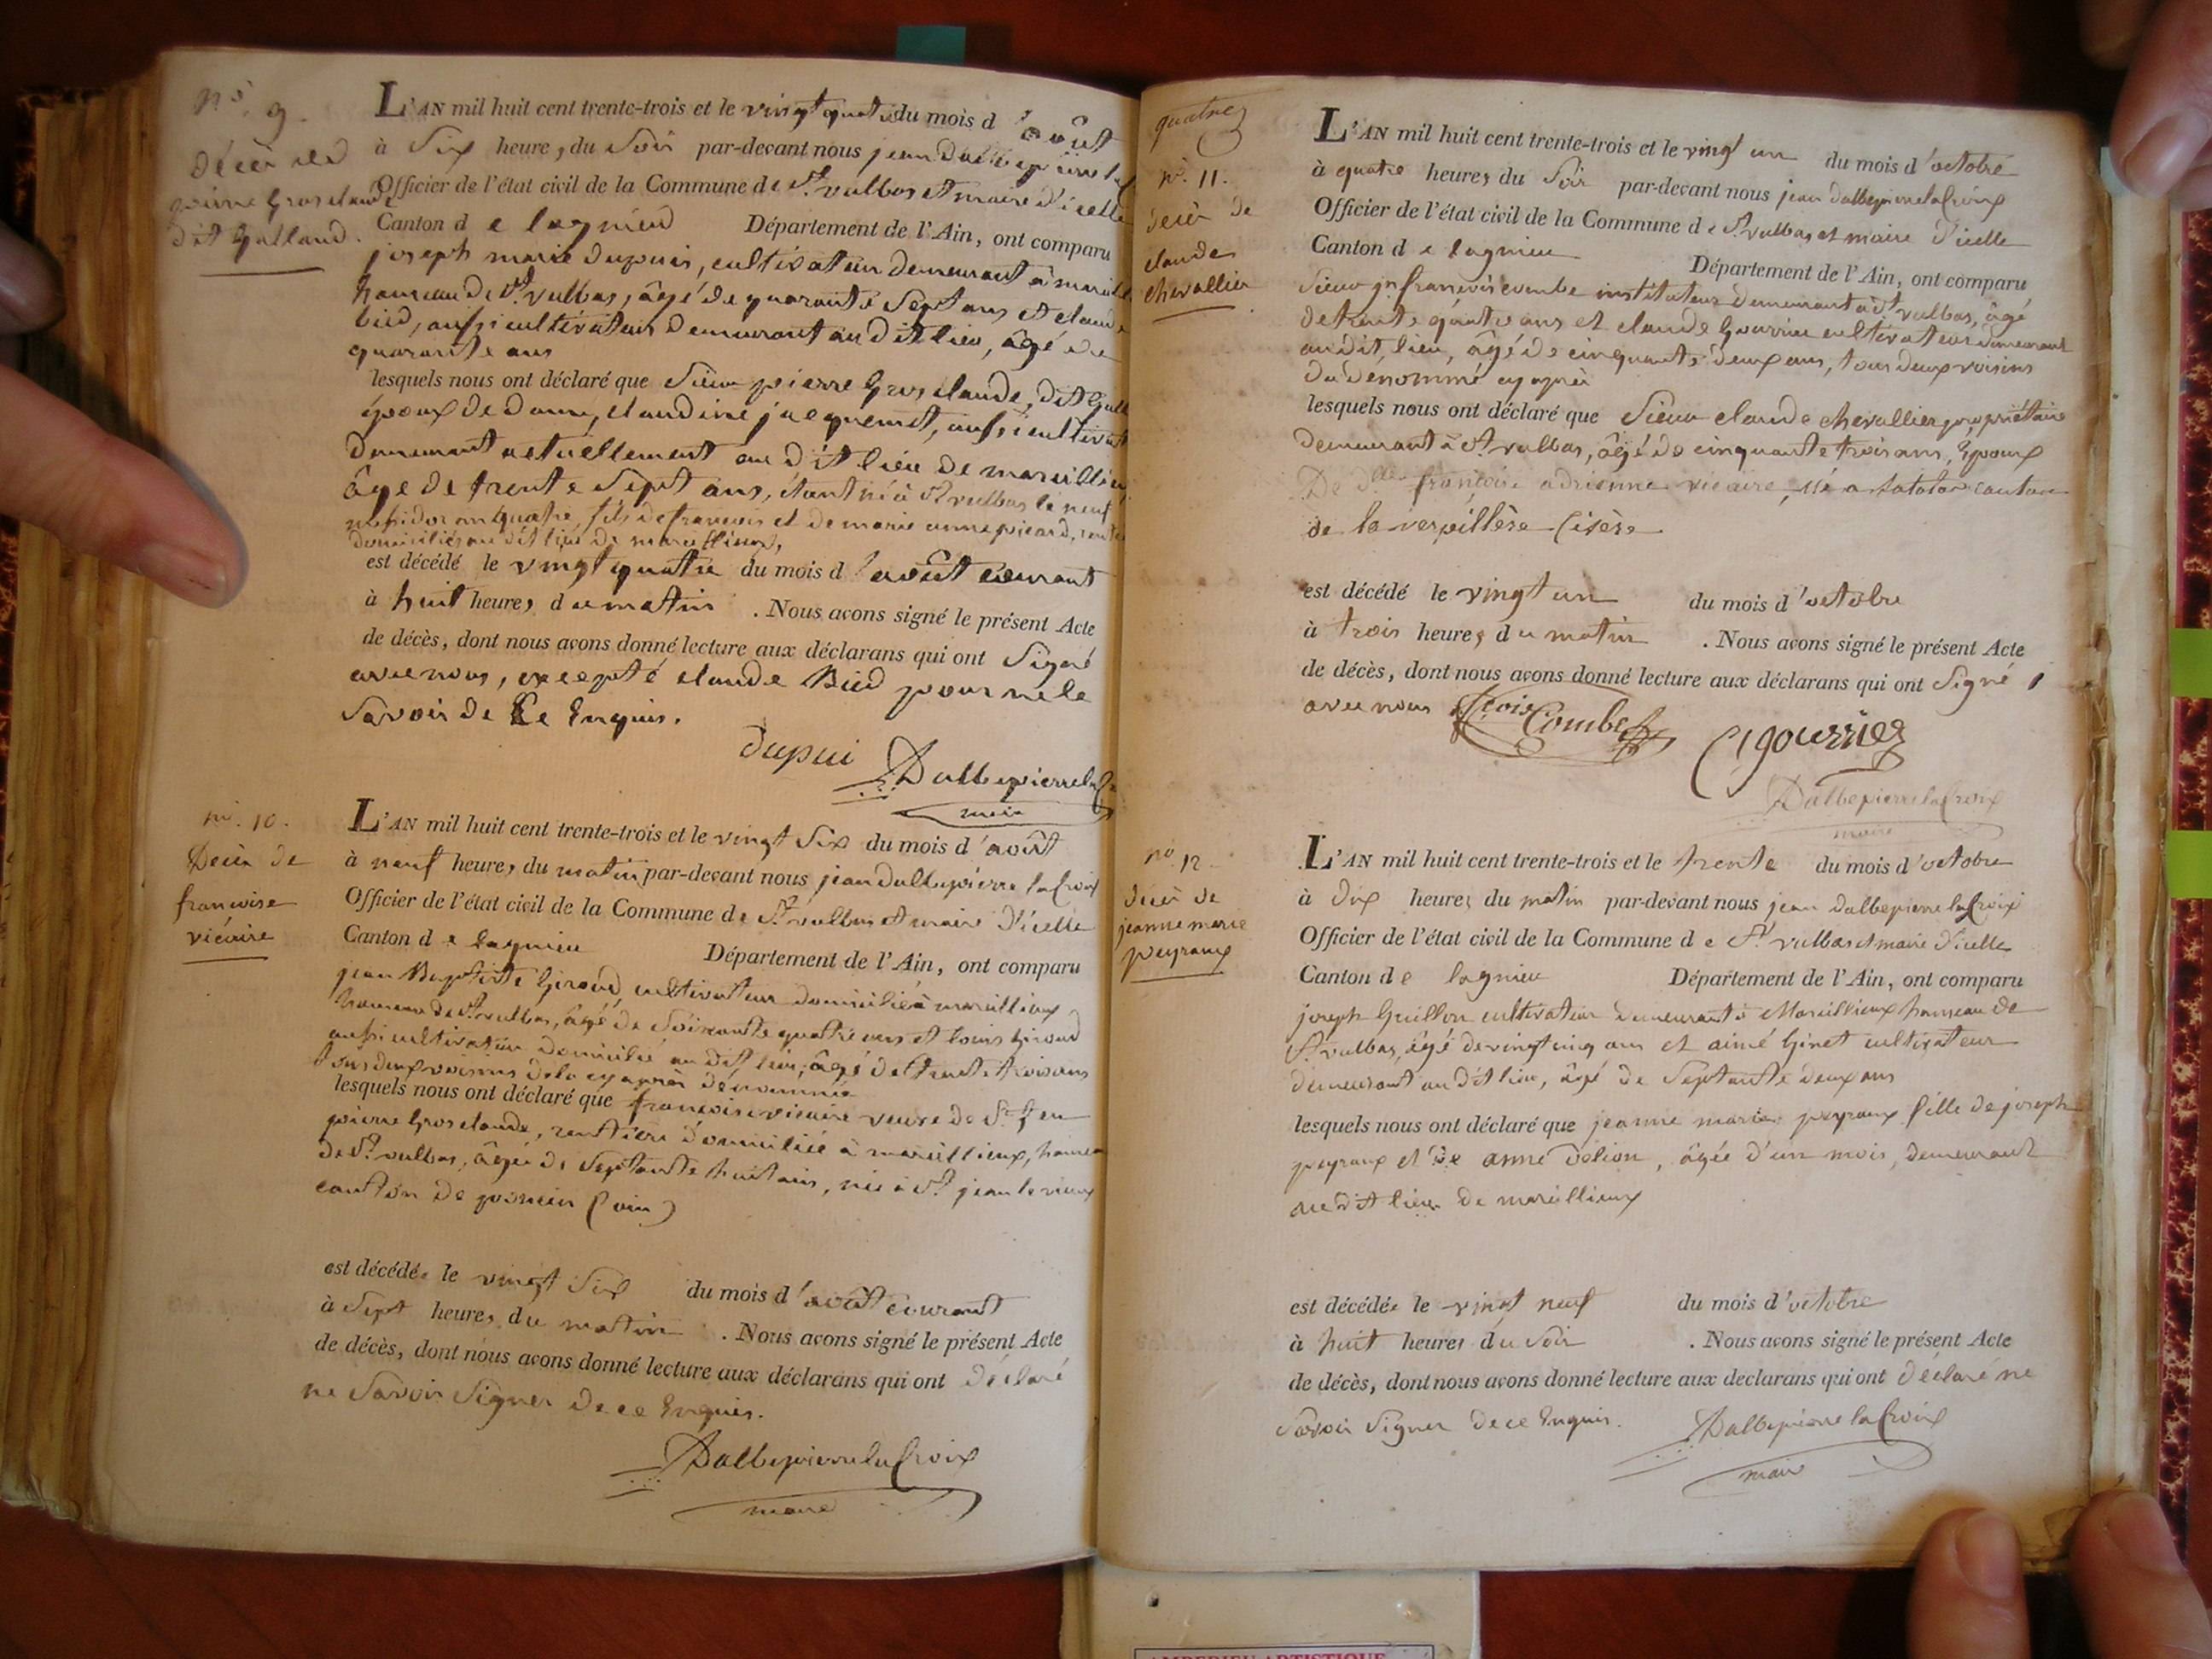 n.° 9.
décès de
pierre Grosclaude
dit Galland.
L'AN mil huit cent trente-trois et le vingt quatre du mois d'août
à Six heures du Soir par-devant nous jean Dalbepierre la
Officier de l'état civil de la Commune de St vulbas et maire d'icelle
Canton de lagnieu Département de l'Ain, ont comparu
joseph marie dupuis, cultivateur demeurant à marcill
hameau de St vulbas, âgé de quarante Sept ans et claude
bied, aussi cultivateur demeurant au dit lieu, âgé de
quarante ans
lesquels nous ont déclaré que Sieur pierre Gros claude, dit Gall
époux de dame, claudine jacquemet, aussi cultivat
demeurant actuellement au dit lieu de marcillieu
âgé de trente Sept ans, étant né à St vulbas le neuf
messidor an quatre, fils de francois et de marie anne picard,
domiciliés au dit lieu de marcillieux,
est décédé le vingt quatre du mois d'août courant
à huit heures du matin . Nous avons signé le présent Acte
de décès, dont nous avons donné lecture aux déclarans qui ont Signé
avec nous, excepté claude Bied pour ne le
Savoir de Ce Enquis.
dupui
Dalbepierrela
maire
n.° 10.
Décès de
francoise
vicaire
L'AN mil huit cent trente-trois et le vingt Six du mois d'août
à neuf heures du matin par-devant nous jean dalbepierre la Croix
Officier de l'état civil de la Commune de St vulbas et maire d'icelle
Canton de lagnieu Département de l'Ain, ont comparu
jean Baptiste Giroud cultivateur domicilié à marcillieux
hameau de St vulbas, âgé de Soixante quatre ans et louis Giroud
aussi cultivateur domicilié au dit lieu, âgé de trente trois ans
tous deux voisins de la cy après dénommée
lesquels nous ont déclaré que francoise vicaire veuve de Sr feu
pierre Grosclaude, rentière domiciliée à marcillieux, hameau
de St vulbas, âgée de Septante huit ans, née à St jean le vieux
canton de poncin (ain)
est décédée le vingt Six du mois d'août courant
à Sept heures du matin . Nous avons signé le présent Acte
de décès, dont nous avons donné lecture aux déclarans qui ont déclaré
ne Savoir Signer de ce Enquis.
Dalbepierrela Croix
maire
quatre
n.° 11.
décès de
claude
chevallier
L'AN mil huit cent trente-trois et le vingt un du mois d'octobre
à quatre heures du Soir par-devant nous jean dalbepierrela Croix
Officier de l'état civil de la Commune de St vulbas et maire d'icelle
Canton de lagnieu Département de l'Ain, ont comparu
Sieur jn francois combe instituteur demeurant à St vulbas, âgé
de trente quatre ans et claude Gourrier cultivateur demeurant
au dit lieu, âgé de cinquante deux ans, tous deux voisins
du dénommé cy après
lesquels nous ont déclaré que Sieur claude chevallier propriétaire
demeurant à St vulbas, âgé de cinquante trois ans, époux
De dlle françoise adrienne vicaire, né a Satolas canton
de la verpillère (isère
est décédé le vingt un du mois d'octobre
à trois heures du matin . Nous avons signé le présent Acte
de décès, dont nous avons donné lecture aux déclarans qui ont Signé
avec nous
fcois Combe
C gourrier
Dalbepierrela Croix
maire
n° 12
décès de
jeanne marie
peyraux
L'AN mil huit cent trente-trois et le trente du mois d'octobre
à dix heures du matin par-devant nous jean dalbepierre la Croix
Officier de l'état civil de la Commune de St vulbas et maire d'icelle
Canton de lagnieu Département de l'Ain, ont comparu
joseph Guillon cultivateur demeurant à Marcillieux hameau de
St vulbas, âgé de vingt cinq ans et aimé Ginet cultivateur
demeurant au dit lieu, âgé de Septante deux ans
lesquels nous ont déclaré que jeanne marie peyraux fille de joseph
peyraux et de anne , âgée d'un mois, demeurant
au dit lieu de marcillieux
est décédée le vingt neuf du mois d'octobre
à huit heures du Soir . Nous avons signé le présent Acte
de décès, dont nous avons donné lecture aux declarans qui ont déclaré ne
Savoir Signer de ce Enquis.
Dalbepierre la Croix
maire
AMBERIEU ARTISTIQUE